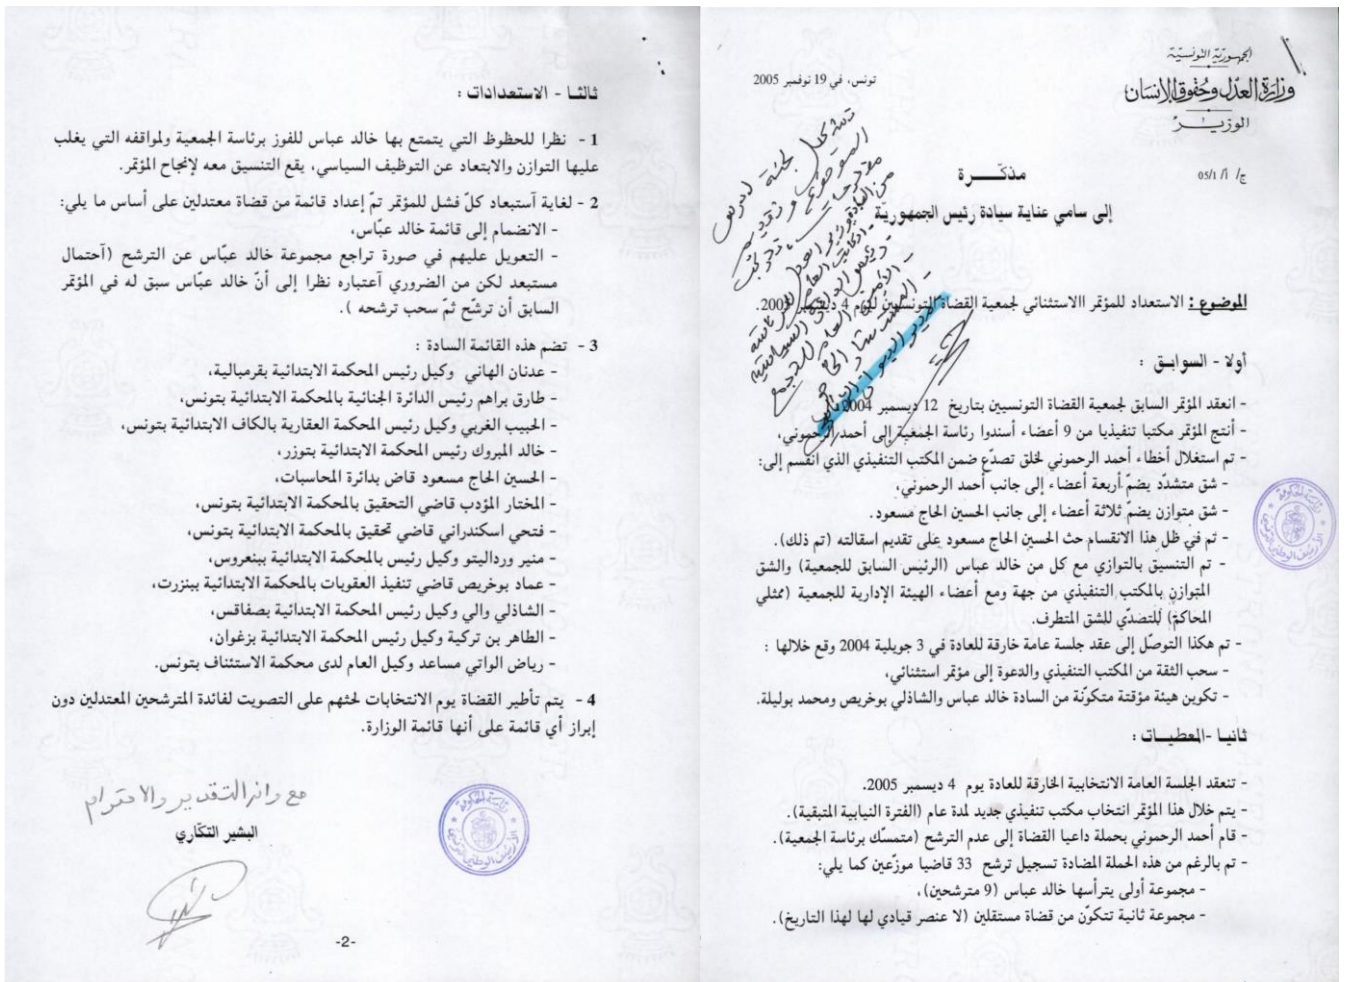 الجمهورية التونسية
وزارة العدل وحقوق الإنسان
الوزير
تونس، في 19 نوفمبر 2005
ج/ أ/ 05/1
مذكّرة
إلى سامي عناية سيادة رئيس الجمهورية
تشكل لجنة لدرس
الموضوع : الاستعداد للمؤتمر االاستثنائي لجمعية القضاة التونسيين ليوم 4 ديسمبر 2005.
أولا - السوابق :
- انعقد المؤتمر السابق لجمعية القضاة التونسيين بتاريخ 12 ديسمبر 2004
- أنتج المؤتمر مكتبا تنفيذيا من 9 أعضاء أسندوا رئاسة الجمعية إلى أحمد الرحموني،
- تم استغلال أخطاء أحمد الرحموني لخلق تصدّع ضمن المكتب التنفيذي الذي انقسم إلى:
- شق متشدّد يضمّ أربعة أعضاء إلى جانب أحمد الرحموني،
- شق متوازن يضمّ ثلاثة أعضاء إلى جانب الحسين الحاج مسعود.
- تم في ظل هذا الانقسام حث الحسين الحاج مسعود على تقديم اسقالته (تم ذلك).
- تم التنسيق بالتوازي مع كل من خالد عباس (الرئيس السابق للجمعية) والشق
المتوازن بالمكتب التنفيذي من جهة ومع أعضاء الهيئة الإدارية للجمعية (ممثلي
المحاكم) للتصدّي للشق المتطرف.
- تم هكذا التوصّل إلى عقد جلسة عامة خارقة للعادة في 3 جويلية 2004 وقع خلالها :
- سحب الثقة من المكتب التنفيذي والدعوة إلى مؤتمر استثنائي،
- تكوين هيئة مؤقتة متكوّنة من السادة خالد عباس والشاذلي بوخريص ومحمد بوليلة.
ثانيا -المعطيات :
- تنعقد الجلسة العامة الانتخابية الخارقة للعادة يوم 4 ديسمبر 2005.
- يتم خلال هذا المؤتمر انتخاب مكتب تنفيذي جديد لمدة عام (الفترة النيابية المتبقية).
- قام أحمد الرحموني بحملة داعيا القضاة إلى عدم الترشح (متمسّك برئاسة الجمعية).
- تم بالرغم من هذه الحملة المضادة تسجيل ترشح 33 قاضيا موزّعين كما يلي:
- مجموعة أولى يترأسها خالد عباس (9 مترشحين)،
- مجموعة ثانية تتكوّن من قضاة مستقلين (لا عنصر قيادي لها لهذا التاريخ).
ثالثا - الاستعدادات :
1 - نظرا للحظوظ التي يتمتع بها خالد عباس للفوز برئاسة الجمعية ولمواقفه التي يغلب
عليها التوازن والابتعاد عن التوظيف السياسي، يقع التنسيق معه لإنجاح المؤتمر.
2 - لغاية آستبعاد كلّ فشل للمؤتمر تمّ إعداد قائمة من قضاة معتدلين على أساس ما يلي:
- الانضمام إلى قائمة خالد عبّاس،
- التعويل عليهم في صورة تراجع مجموعة خالد عبّاس عن الترشح (آحتمال
مستبعد لكن من الضروري آعتباره نظرا إلى أنّ خالد عبّاس سبق له في المؤتمر
السابق أن ترشّح ثمّ سحب ترشحه ).
3 - تضم هذه القائمة السادة :
- عدنان الهاني وكيل رئيس المحكمة الابتدائية بقرمبالية،
- طارق براهم رئيس الدائرة الجنائية بالمحكمة الابتدائية بتونس،
- الحبيب الغربي وكيل رئيس المحكمة العقارية بالكاف الابتدائية بتونس،
- خالد المبروك رئيس المحكمة الابتدائية بتوزر،
- الحسين الحاج مسعود قاض بدائرة المحاسبات،
- المختار المؤدب قاضي التحقيق بالمحكمة الابتدائية بتونس،
- فتحي اسكندراني قاضي تحقيق بالمحكمة الابتدائية بتونس،
- منير ورداليتو وكيل رئيس بالمحكمة الابتدائية ببنعروس،
- عماد بوخريص قاضي تنفيذ العقوبات بالمحكمة الابتدائية ببنزرت،
- الشاذلي والي وكيل رئيس المحكمة الابتدائية بصفاقس،
- الطاهر بن تركية وكيل رئيس المحكمة الابتدائية بزغوان،
- رياض الواتي مساعد وكيل العام لدى محكمة الاستئناف بتونس.
4 - يتم تأطير القضاة يوم الانتخابات لحثهم على التصويت لفائدة المترشحين المعتدلين دون
إبراز أي قائمة على أنها قائمة الوزارة.
مع وافر التقدير والاحترام
البشير التكّاري
-2-